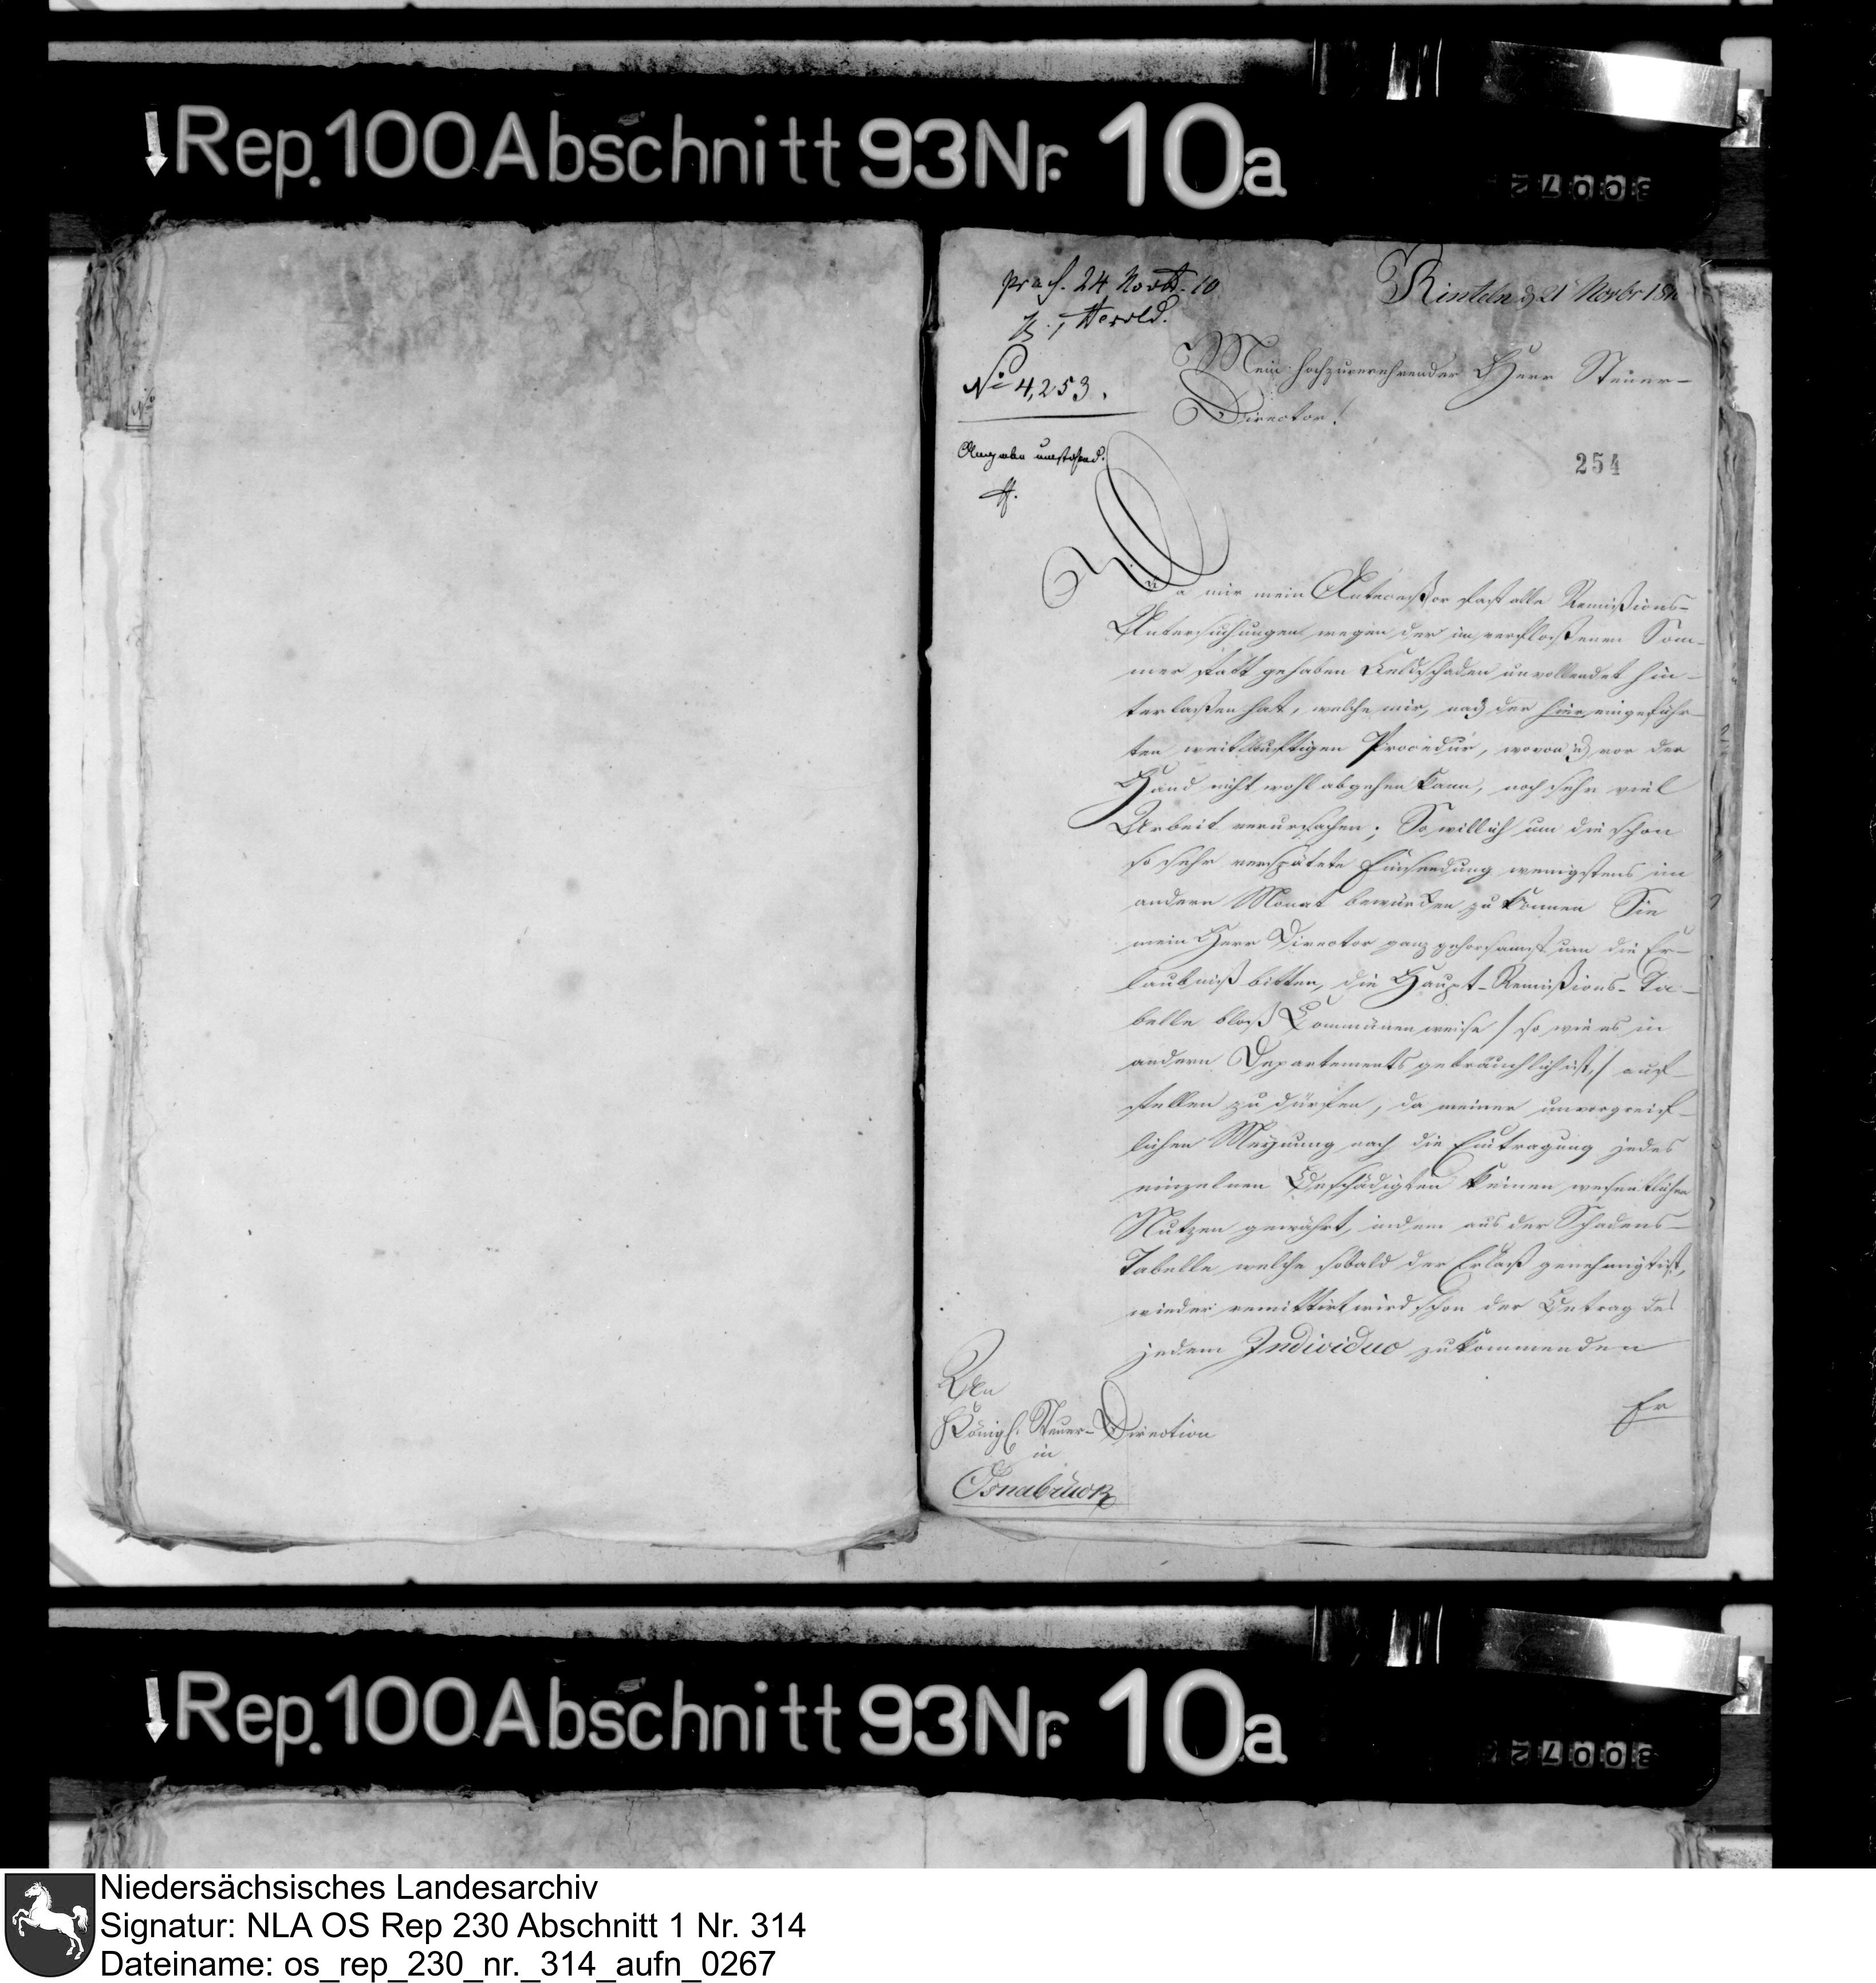 Rep. 100 Abschnitt 93 Nr. 10a
praes. 24 Novb. 10
Herold.
No 4,253.
Rinteln d 21 Novbr 1810
Mein hochzuverehrender Herr Steuer-
Director!
254
Da mir mein Antecessor fast alle Remißions-
Untersuchungen wegen der im verfloßenen Som-
mer statt gehaben Feldschaden unvollendet hin-
terlaßen hat, welche mir, nach der hier eingeführ-
ten weitläuftigen Procedur, wovon ich vor der
Hand nicht wohl abgehen kann, noch sehr viel
Arbeit verursachen; So will ich um die schon
so sehr verspätete Einsendung wenigstens im
andern Monat bewürken zu können Sie
mein Herr Director ganz gehorsamst um die Er-
laubniß bitten, die Haupt-Remißions-Ta-
belle bloß Communenweise / so wie es in
andern Departements gebräuchlich ist, / auf-
stellen zu dürfen, da meiner unvorgreif-
lichen Meynung nach die Eintragung jedes
einzelnen Beschädigten keinen wesentlichen
Nutzen gewährt, indem aus der Schadens-
Tabelle, welche sobald der Erlaß genehmigt ist,
wieder remittirt wird schon der Betrag des
jedem Individuo zukommenden
Er
An
Königl. Steuer-Direction
in
Osnabrück
Rep. 100 Abschnitt 93 Nr. 10a
Niedersächsisches Landesarchiv
Signatur: NLA OS Rep 230 Abschnitt 1 Nr. 314
Dateiname: os_rep_230_nr._314_aufn_0267